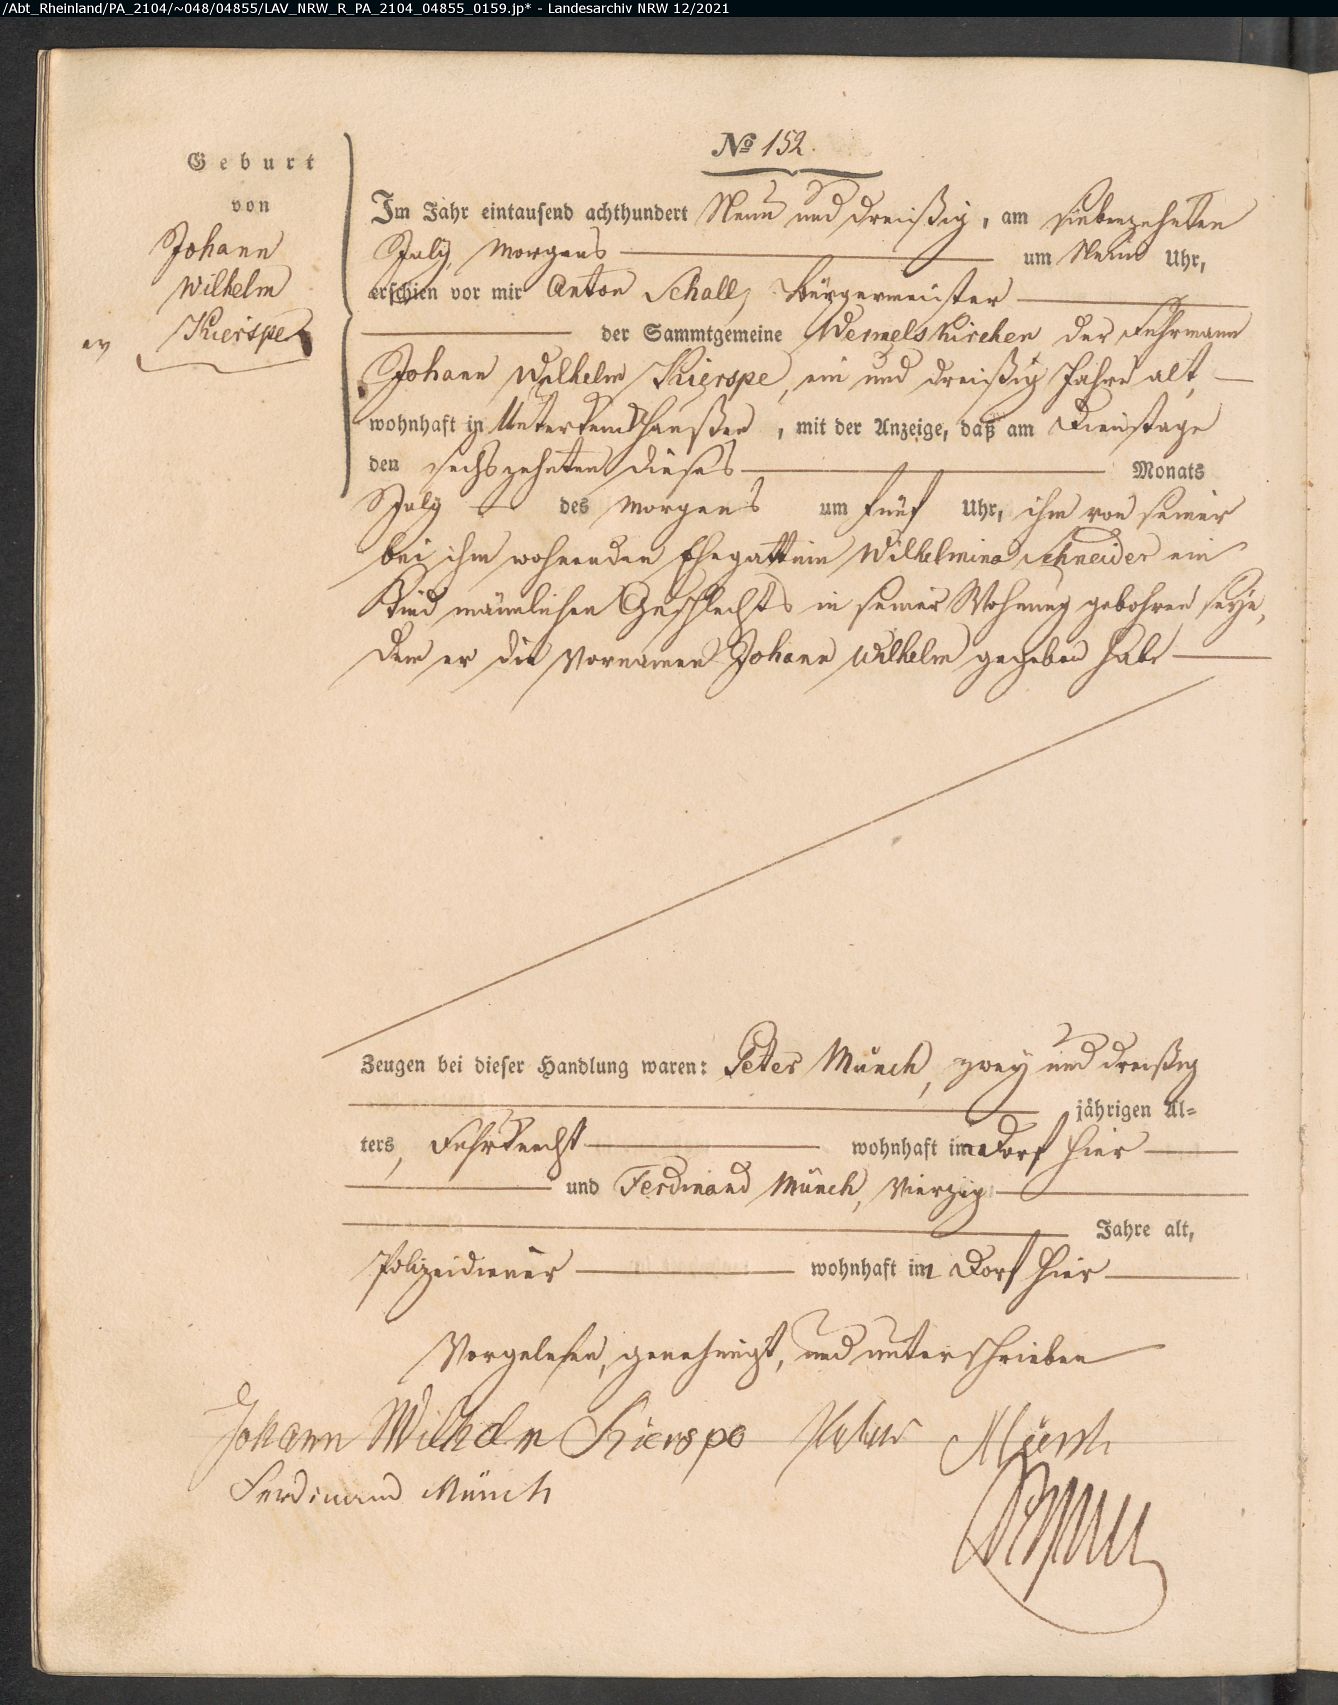 /Abt_Rheinland/PA_2104/~048/04855/LAV_NRW_R_PA_2104_04855_0159.jp* - Landesarchiv NRW 12/2021
№ 152.
Geburt
von
Johann
Wilhelm
Kierspe
ev
Im Jahr eintausend achthundert Neun und dreißig, am siebenzehnten
July, Morgens um Neun Uhr,
erschien vor mir Anton Schall, Bürgermeister
der Sammtgemeine Wermelskirchen der Fuhrmann
Johann Wilhelm Kierspe, ein und dreißig Jahre alt,
wohnhaft in, mit der Anzeige, daß am Dienstage
den sechszehnten dieses Monats
July des Morgens um fünf Uhr, ihm von seiner
bei ihm wohnenden Ehegattin Wilhelmina Schneider ein
Kind männlichen Geschlechts in seiner Wohnung gebohren seye,
dem er die Vornamen Johann Wilhelm gegeben habe
Zeugen bei dieser Handlung waren: Peter Münch, zwey und dreißig
jährigen Al=
ters, Fuhrknecht wohnhaft im Dorf hier
und Ferdinand Münch, Vierzig
Jahre alt,
Polizeidiener wohnhaft im Dorf hier
Vorgelesen, genehmigt, und unterschrieben
Johann Wilhelm Kierspe Peter Münch
Ferdinand Münch